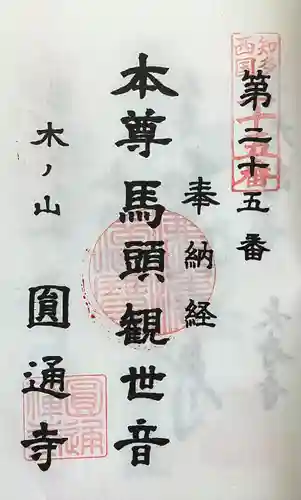 第二十五番
知多
西国
十五番
奉納経
本尊馬頭観世音
木ノ山
圓通寺